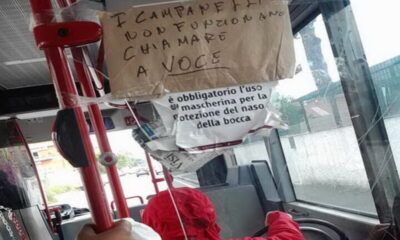 I CAMPANELLI
NON FUNZIONANO
CHIAMARE
A VOCE
è obbligatorio l'uso
di mascherina per la
Protezione del naso
della bocca